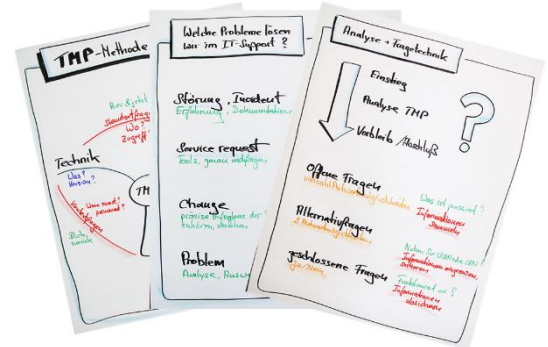 TMP-Methode
Hier & jetzt
Standortfrag
Wo?
Zugriff
Technik
Was?
Version?
TM
Welche Probleme lösen
wir im IT-Support?
Störung, Incident
Erfahrung, Dokumentation
Service request
Tools, genau nachfragen
Change
präzise
Problem
Analyse, Ausw
Analyse + Fragetechnik
Einstieg
Analyse TMP
Verbleib/Abschluß
?
Offene Fragen
Was ist passiert?
Informationen
sammeln
Alternativfragen
Nutzen Sie WLAN oder LAN?
Informationen eingrenzen,
sortieren
geschlossene Fragen
ja/Nein
Funktioniert es?
Informationen
absichern